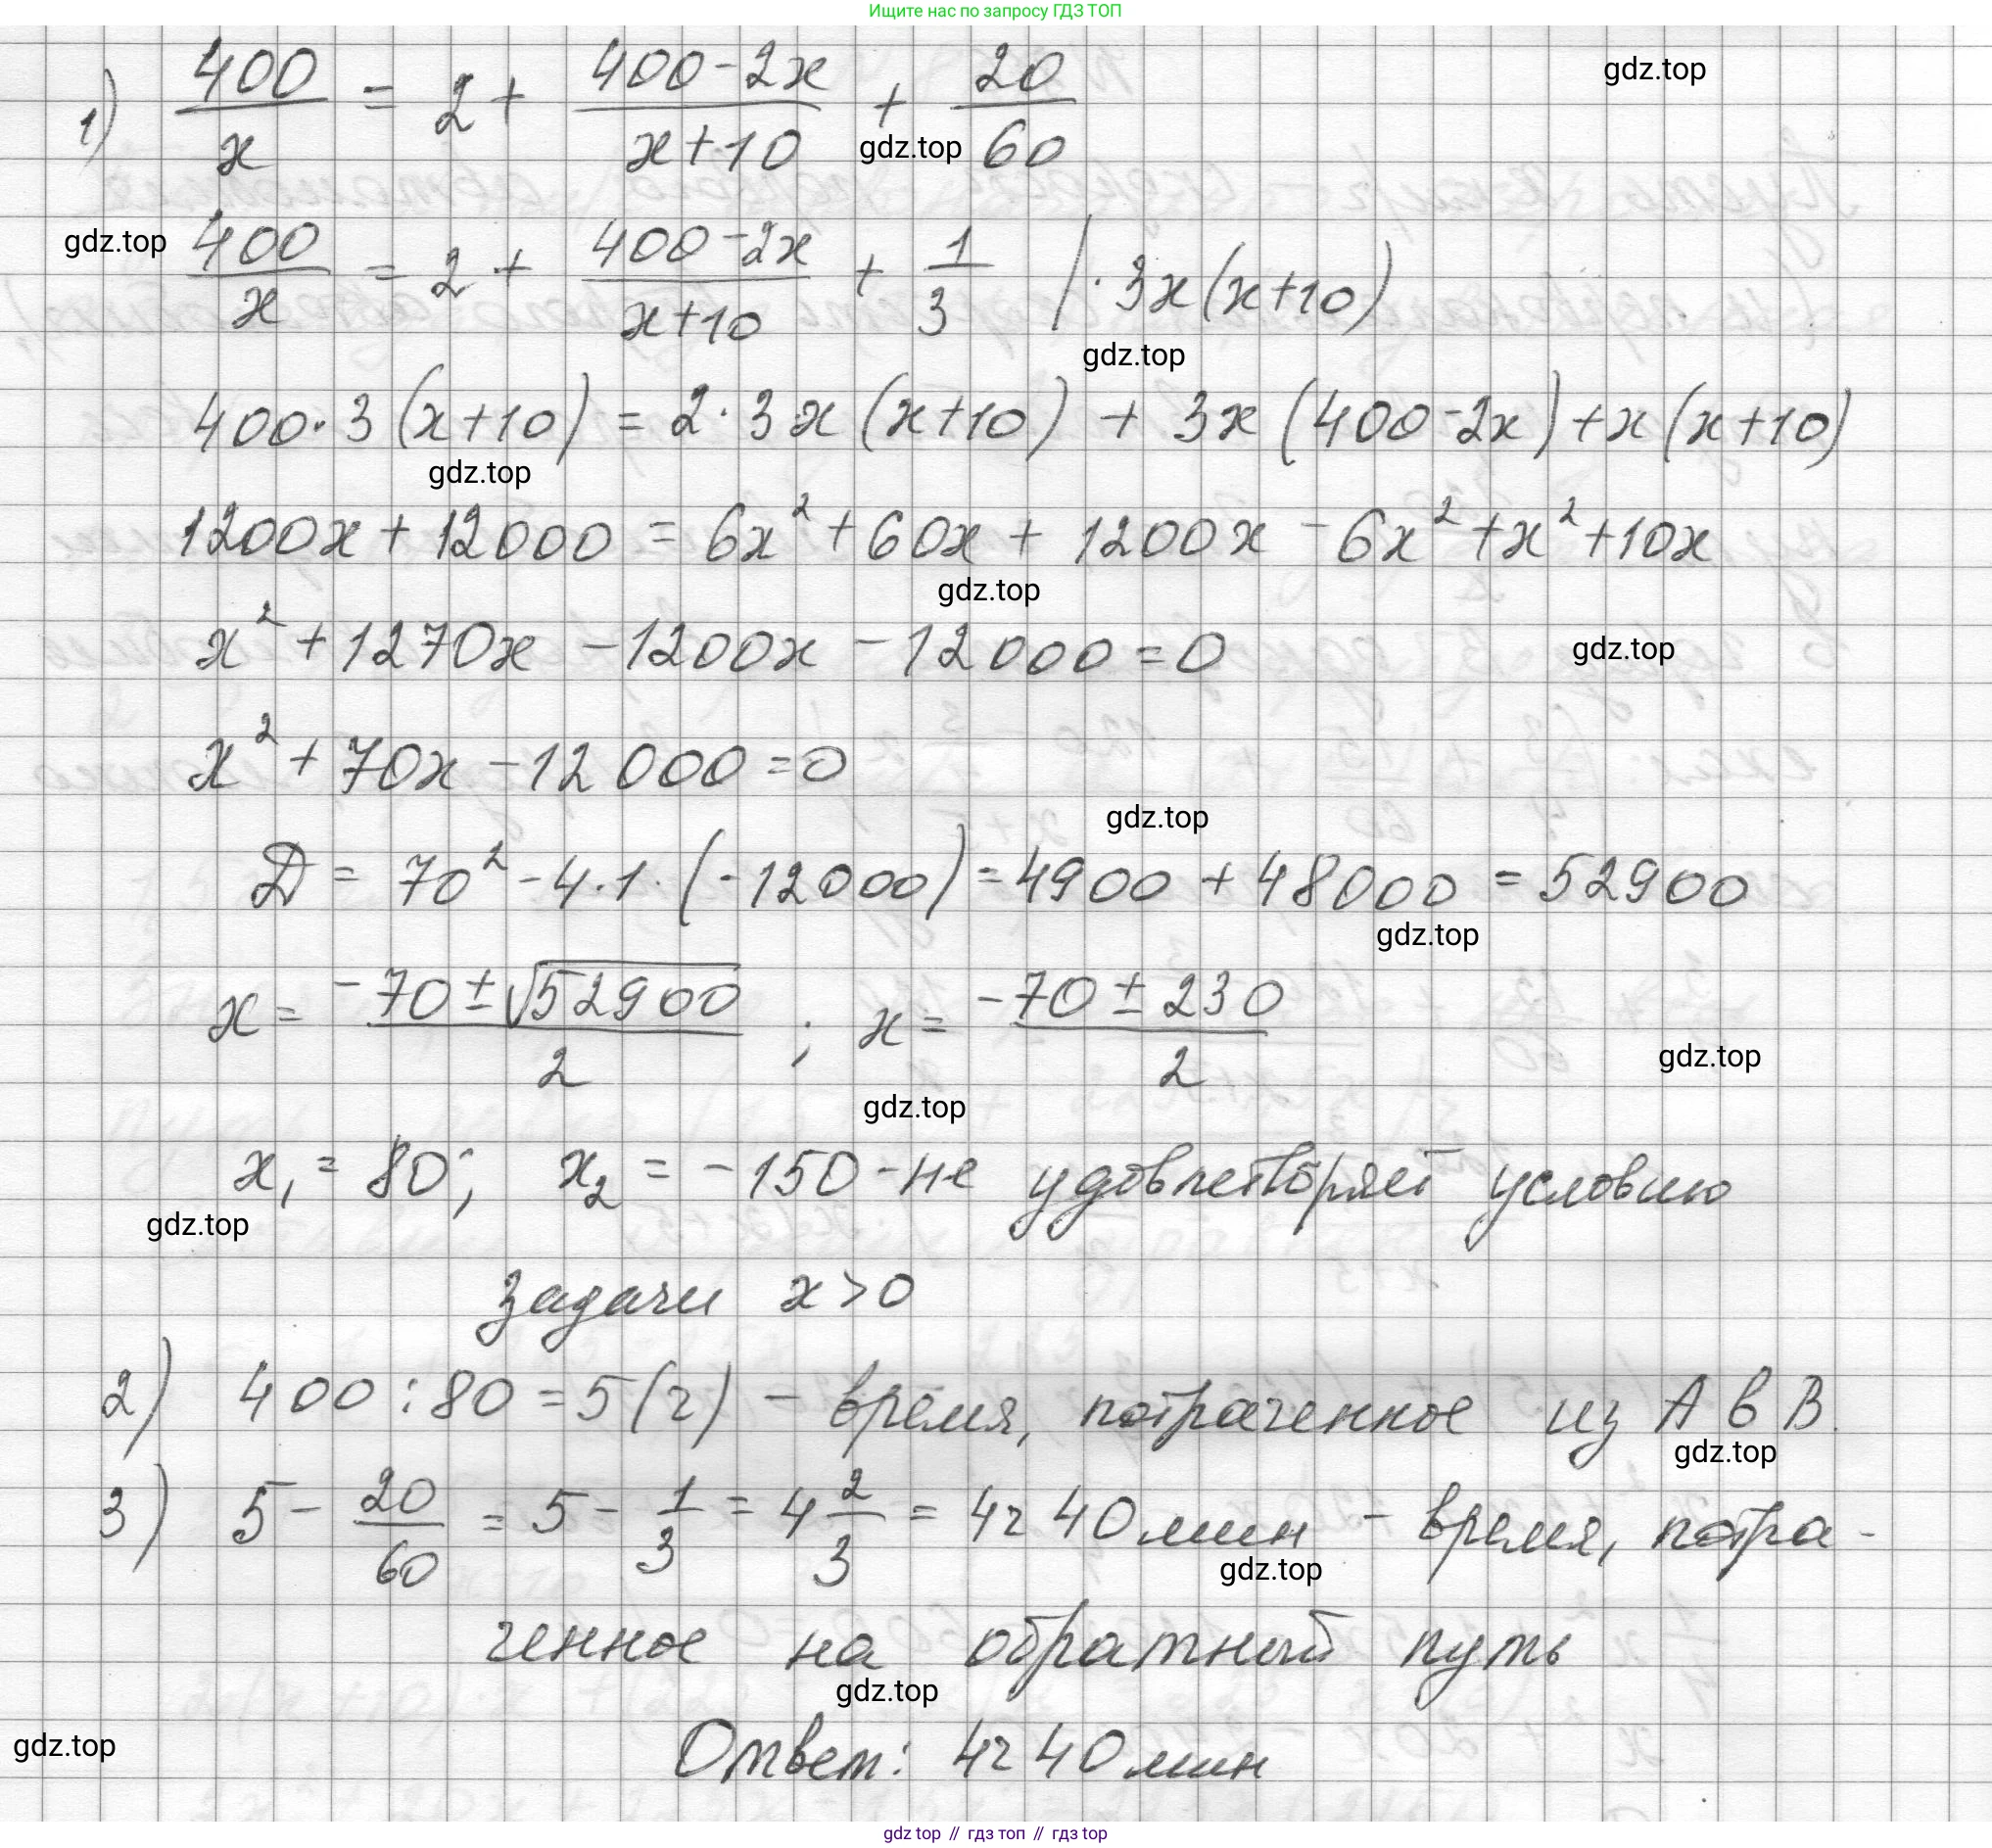 Ищите нас по запросу ГДЗ ТОП
1) 400/x = 2 + (400-2x)/(x+10) + 20/60
gdz.top
gdz.top
400/x = 2 + (400-2x)/(x+10) + 1/3 | · 3x(x+10)
gdz.top
gdz.top
400·3(x+10) = 2·3x(x+10) + 3x(400-2x)+x(x+10)
gdz.top
1200x + 12000 = 6x² + 60x + 1200x - 6x² + x² + 10x
gdz.top
x² + 1270x - 1200x - 12000 = 0
gdz.top
x² + 70x - 12000 = 0
gdz.top
D = 70² - 4·1·(-12000) = 4900 + 48000 = 52900
gdz.top
x = (-70 ± √52900)/2 ; x = (-70 ± 230)/2
gdz.top
gdz.top
x₁ = 80; x₂ = -150 - не удовлетворяет условию
gdz.top
задачи x > 0
2) 400 : 80 = 5(ч) - время, потраченное из А в В.
gdz.top
3) 5 - 20/60 = 5 - 1/3 = 4 2/3 = 4ч 40мин - время, потра-
gdz.top
ченное на обратный путь
gdz.top
Ответ: 4ч 40мин
gdz.top
gdz top // гдз топ // гдз top